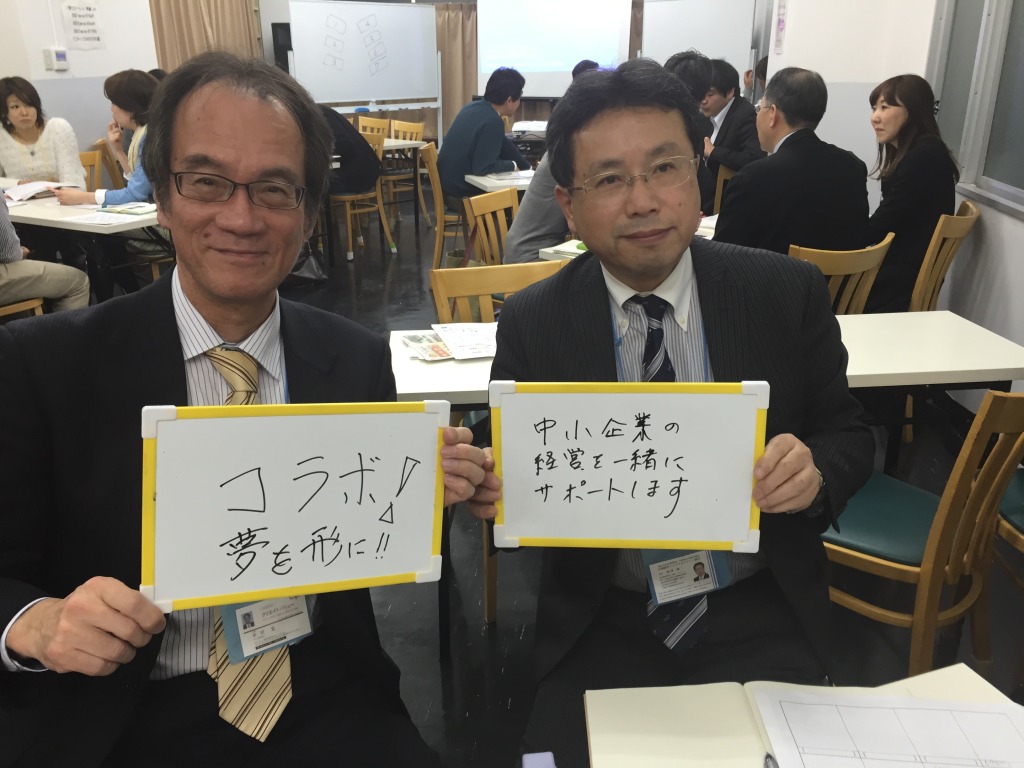 コラボ!
夢を形に!!
中小企業の
経営を一緒に
サポートします